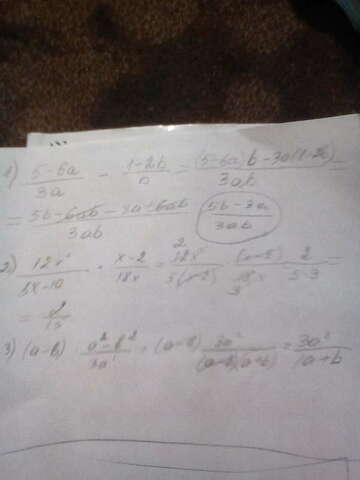 1) (5-6a)/3a - (1-2b)/b = ((5-6a)b-3a(1-2b))/3ab
= (5b-6ab-3a+6ab)/3ab (5b-3a)/3ab
2) 12x²/(5x-10) · (x-2)/18x = 12x²/5(x-2) (x-2)/18x 2/(5·3) =
3) (a-b) (a²-b²)/3a² = (a-b) 3a²/((a-b)(a+b)) = 3a²/(a+b)